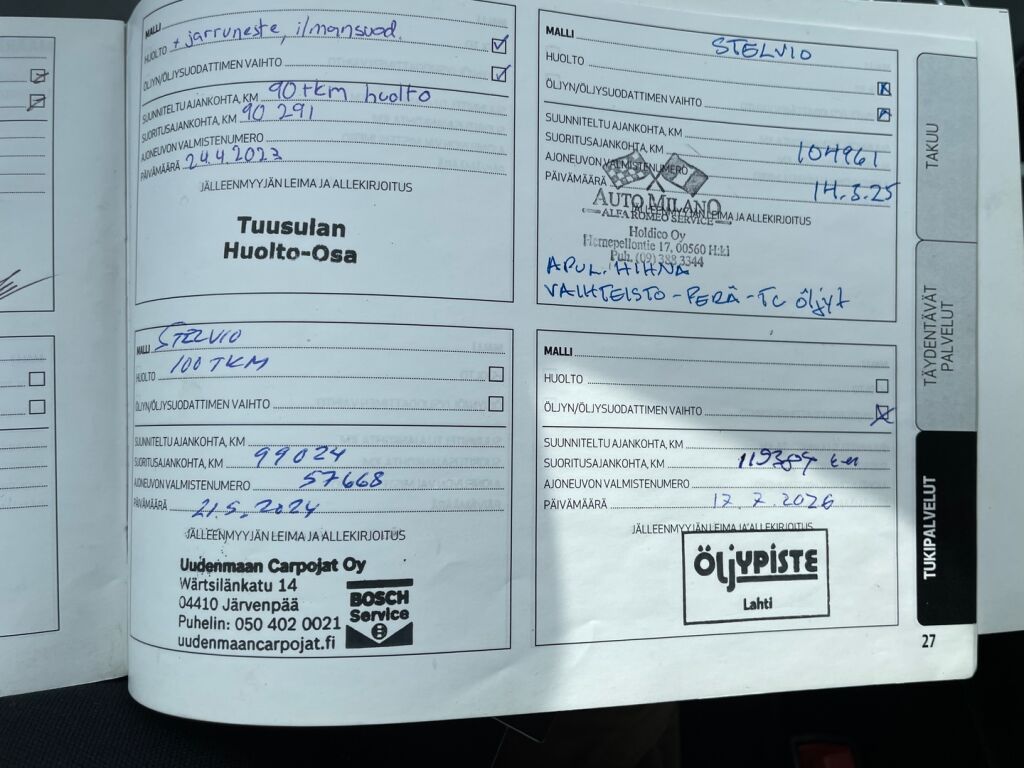 MALLI
HUOLTO + jarruneste, ilmansuod.
ÖLJYN/ÖLJYSUODATTIMEN VAIHTO
SUUNNITELTU AJANKOHTA, KM 90 tkm huolto
SUORITUSAJANKOHTA, KM 90 291
AJONEUVON VALMISTENUMERO
PÄIVÄMÄÄRÄ 24.4.2023
JÄLLEENMYYJÄN LEIMA JA ALLEKIRJOITUS
Tuusulan
Huolto-Osa
MALLI STELVIO
HUOLTO
ÖLJYN/ÖLJYSUODATTIMEN VAIHTO
SUUNNITELTU AJANKOHTA, KM
SUORITUSAJANKOHTA, KM 104961
AJONEUVON VALMISTENUMERO
PÄIVÄMÄÄRÄ 14.3.25
JÄLLEENMYYJÄN LEIMA JA ALLEKIRJOITUS
AUTO MILANO
ALFA ROMEO SERVICE
Holdico Oy
Hernepellontie 17, 00560 H:ki
Puh. (09) 388 3344
APUL. HIHNA
VAIHTEISTO - PERÄ - TC öljyt
MALLI STELVIO
HUOLTO 100 TKM
ÖLJYN/ÖLJYSUODATTIMEN VAIHTO
SUUNNITELTU AJANKOHTA, KM
SUORITUSAJANKOHTA, KM 99024
AJONEUVON VALMISTENUMERO 57668
PÄIVÄMÄÄRÄ 21.5.2024
JÄLLEENMYYJÄN LEIMA JA ALLEKIRJOITUS
Uudenmaan Carpojat Oy
Wärtsilänkatu 14
04410 Järvenpää
Puhelin: 050 402 0021
uudenmaancarpojat.fi
BOSCH
Service
MALLI
HUOLTO
ÖLJYN/ÖLJYSUODATTIMEN VAIHTO
SUUNNITELTU AJANKOHTA, KM
SUORITUSAJANKOHTA, KM 119384 km
AJONEUVON VALMISTENUMERO
PÄIVÄMÄÄRÄ 17.7.2026
JÄLLEENMYYJÄN LEIMA JA ALLEKIRJOITUS
ÖLJYPISTE
Lahti
TAKUU
TÄYDENTÄVÄT
PALVELUT
TUKIPALVELUT
27